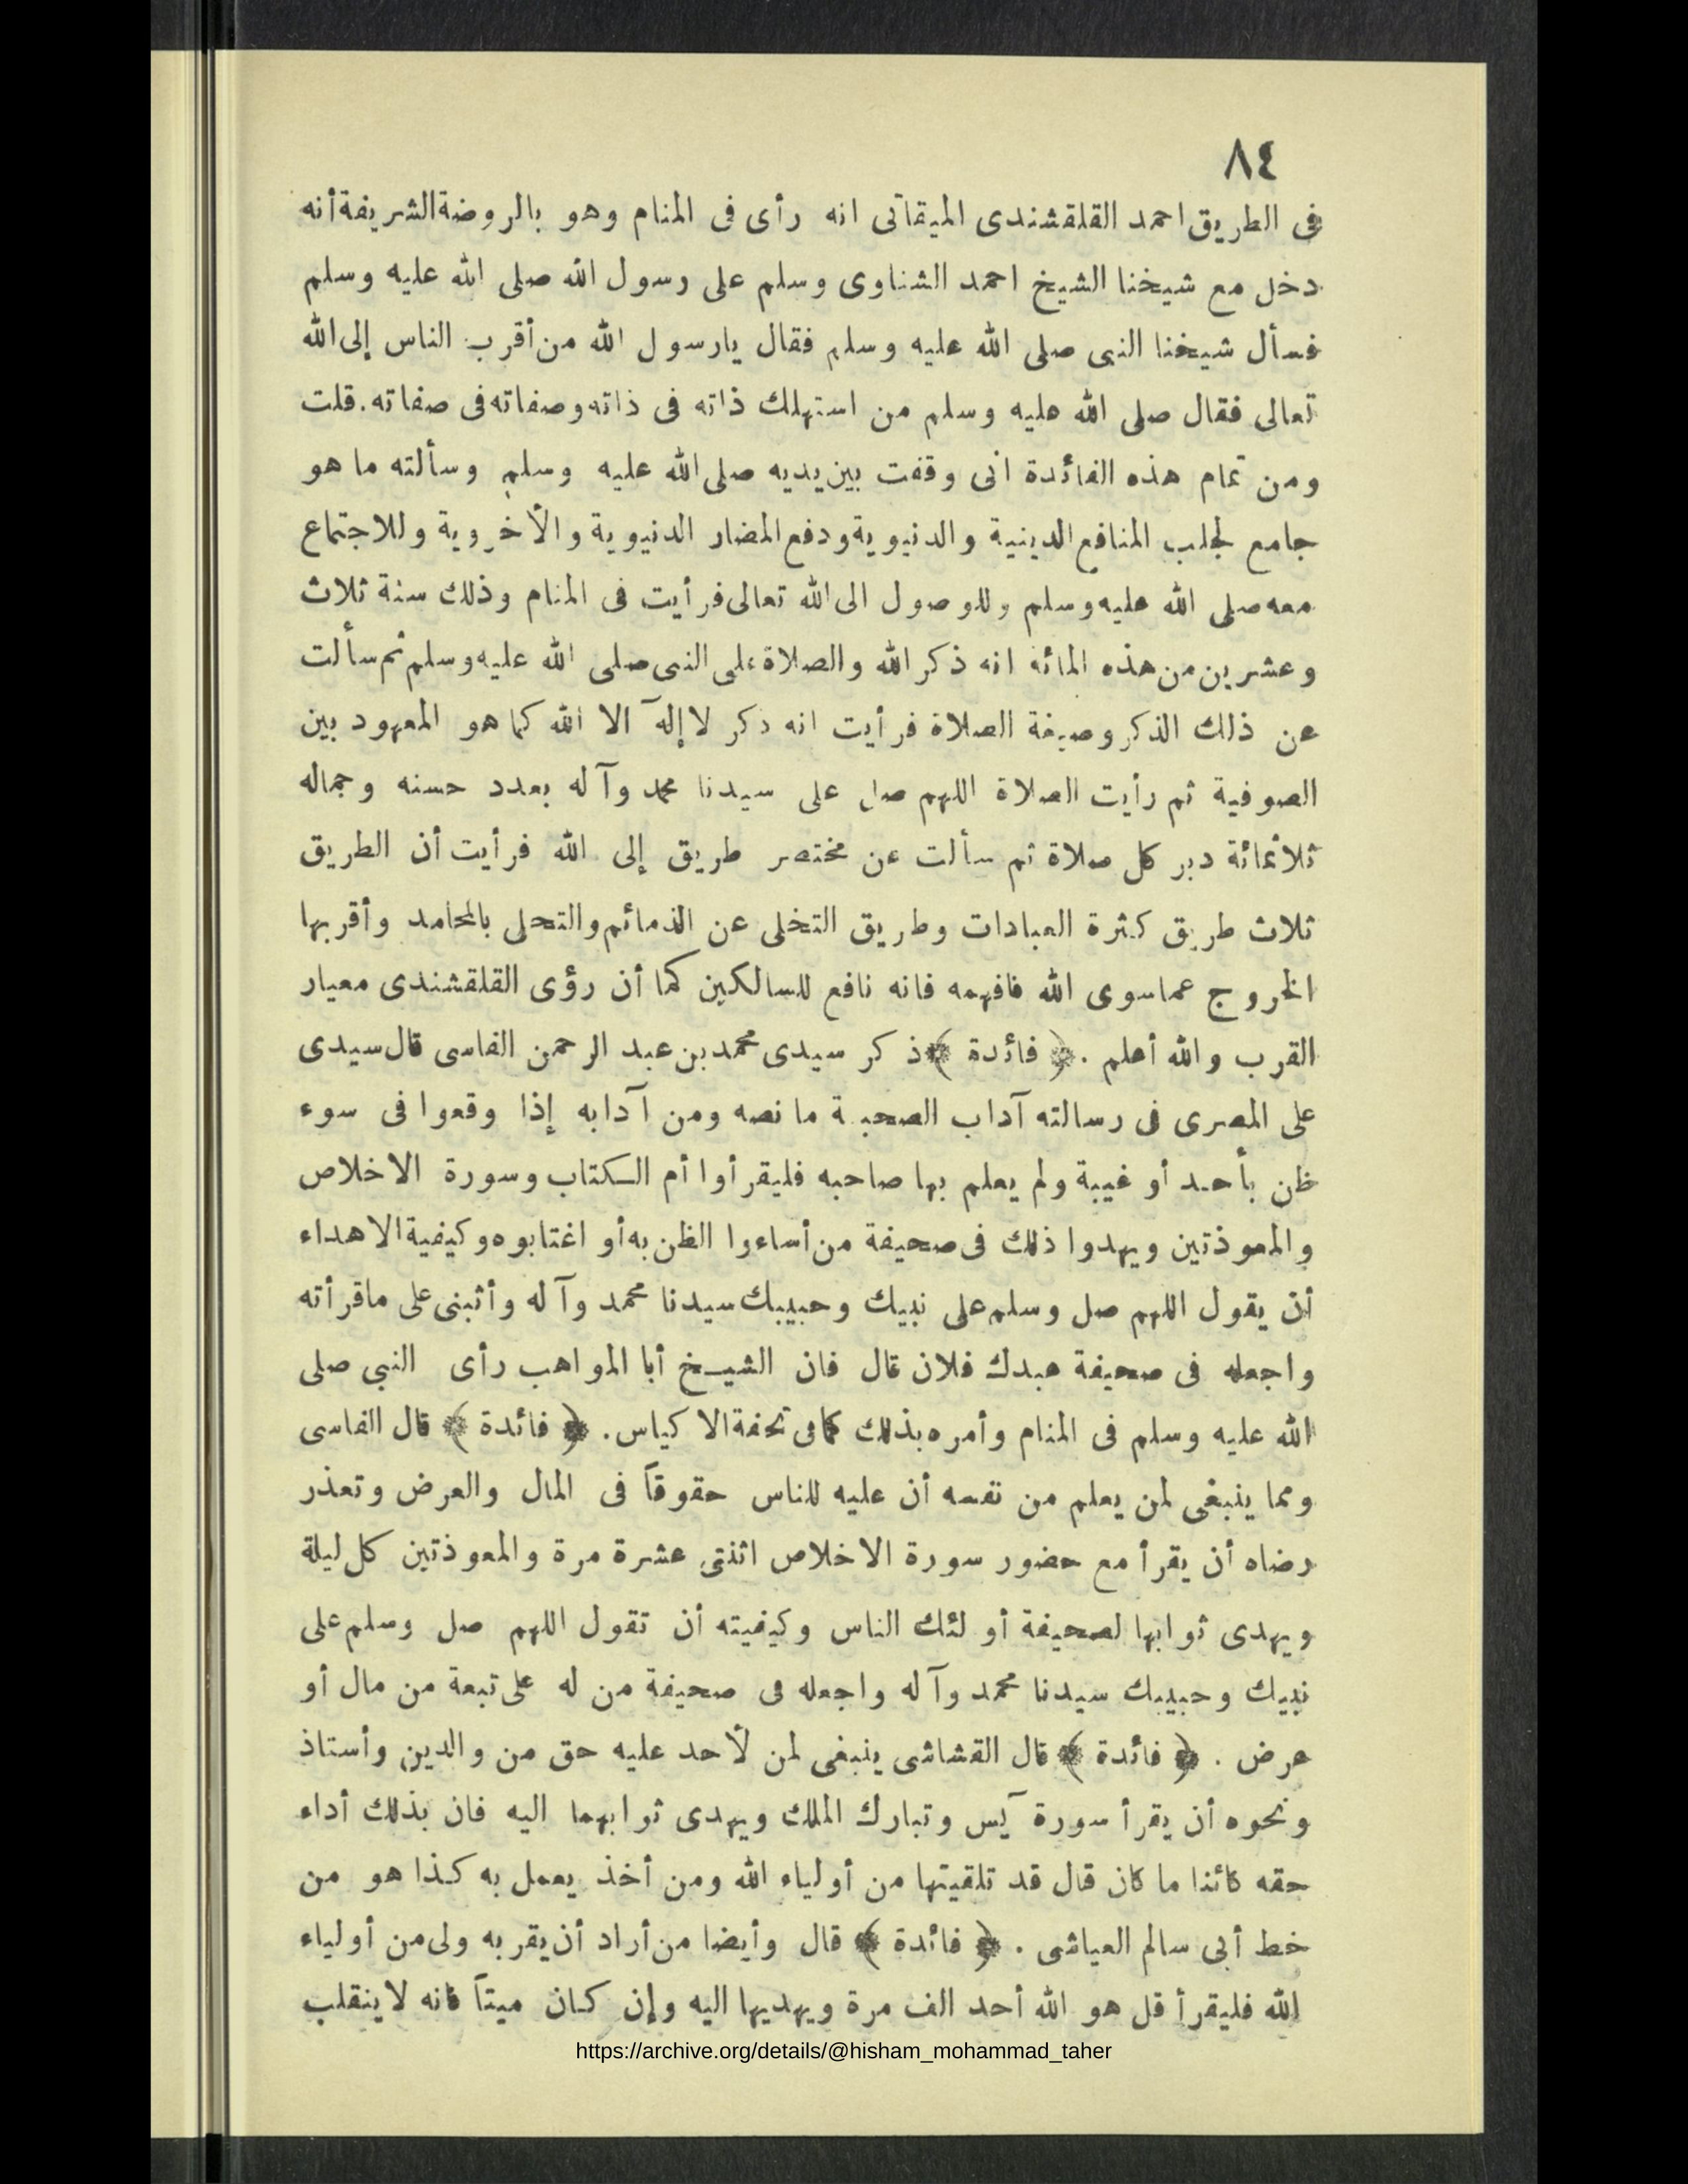 ٨٤
فى الطريق احمد القلقشندى الميقاتى انه رأى فى المنام وهو بالروضة الشريفة أنه
دخل مع شيخنا الشيخ احمد الشناوى وسلم على رسول الله صلى الله عليه وسلم
فسأل شيخنا النبى صلى الله عليه وسلم فقال يارسول الله من أقرب الناس إلى الله
تعالى فقال صلى الله عليه وسلم من استهلك ذاته فى ذاته وصفاته فى صفاته. قلت
ومن تمام هذه الفائدة انى وقفت بين يديه صلى الله عليه وسلم وسألته ما هو
جامع لجلب المنافع الدينية والدنيوية ودفع المضار الدنيوية والأخروية وللاجتماع
معه صلى الله عليه وسلم وللوصول الى الله تعالى فرأيت فى المنام وذلك سنة ثلاث
وعشرين من هذه المائة انه ذكر الله والصلاة على النبى صلى الله عليه وسلم ثم سألت
عن ذلك الذكر وصيغة الصلاة فرأيت انه ذكر لا إلٓه الا الله كما هو المعهود بين
الصوفية ثم رأيت الصلاة اللهم صل على سيدنا محمد وآله بعدد حسنه وجماله
ثلاثمائة دبر كل صلاة ثم سألت عن مختصر طريق إلى الله فرأيت أن الطريق
ثلاث طريق كثرة العبادات وطريق التخلى عن الذمائم والتحلى بالمحامد وأقربها
الخروج عماسوى الله فافهمه فانه نافع للسالكين كما أن رؤى القلقشندى معيار
القرب والله أعلم . ﴿ فائدة ﴾ ذكر سيدى محمد بن عبد الرحمن الفاسى قال سيدى
على المصرى فى رسالته آداب الصحبة ما نصه ومن آدابه إذا وقعوا فى سوء
ظن بأحد أو غيبة ولم يعلم بها صاحبه فليقرأوا أم الكتاب وسورة الاخلاص
والمعوذتين ويهدوا ذلك فى صحيفة من أساءوا الظن به أو اغتابوه وكيفية الاهداء
أن يقول اللهم صل وسلم على نبيك وحبيبك سيدنا محمد وآله وأثبنى على ماقرأته
واجعله فى صحيفة عبدك فلان قال فان الشيخ أبا المواهب رأى النبي صلى
الله عليه وسلم فى المنام وأمره بذلك كما فى تحفة الاكياس. ﴿ فائدة ﴾ قال الفاسى
ومما ينبغى لمن يعلم من نفسه أن عليه للناس حقوقاً فى المال والعرض وتعذر
رضاه أن يقرأ مع حضور سورة الاخلاص اثنتى عشرة مرة والمعوذتين كل ليلة
ويهدى ثوابها لصحيفة أولئك الناس وكيفيته أن تقول اللهم صل وسلم على
نبيك وحبيبك سيدنا محمد وآله واجعله فى صحيفة من له على تبعة من مال أو
عرض . ﴿ فائدة ﴾ قال القشاشى ينبغى لمن لأحد عليه حق من والدين وأستاذ
ونحوه أن يقرأ سورة يٓس وتبارك الملك ويهدى ثوابهما اليه فان بذلك أداء
حقه كائنا ما كان قال قد تلقيتها من أولياء الله ومن أخذ يعمل به كذا هو من
خط أبى سالم العياشى . ﴿ فائدة ﴾ قال وأيضا من أراد أن يقربه ولى من أولياء
الله فليقرأ قل هو الله أحد الف مرة ويهديها اليه وإن كان ميتاً فانه لا ينقلب
https://archive.org/details/@hisham_mohammad_taher